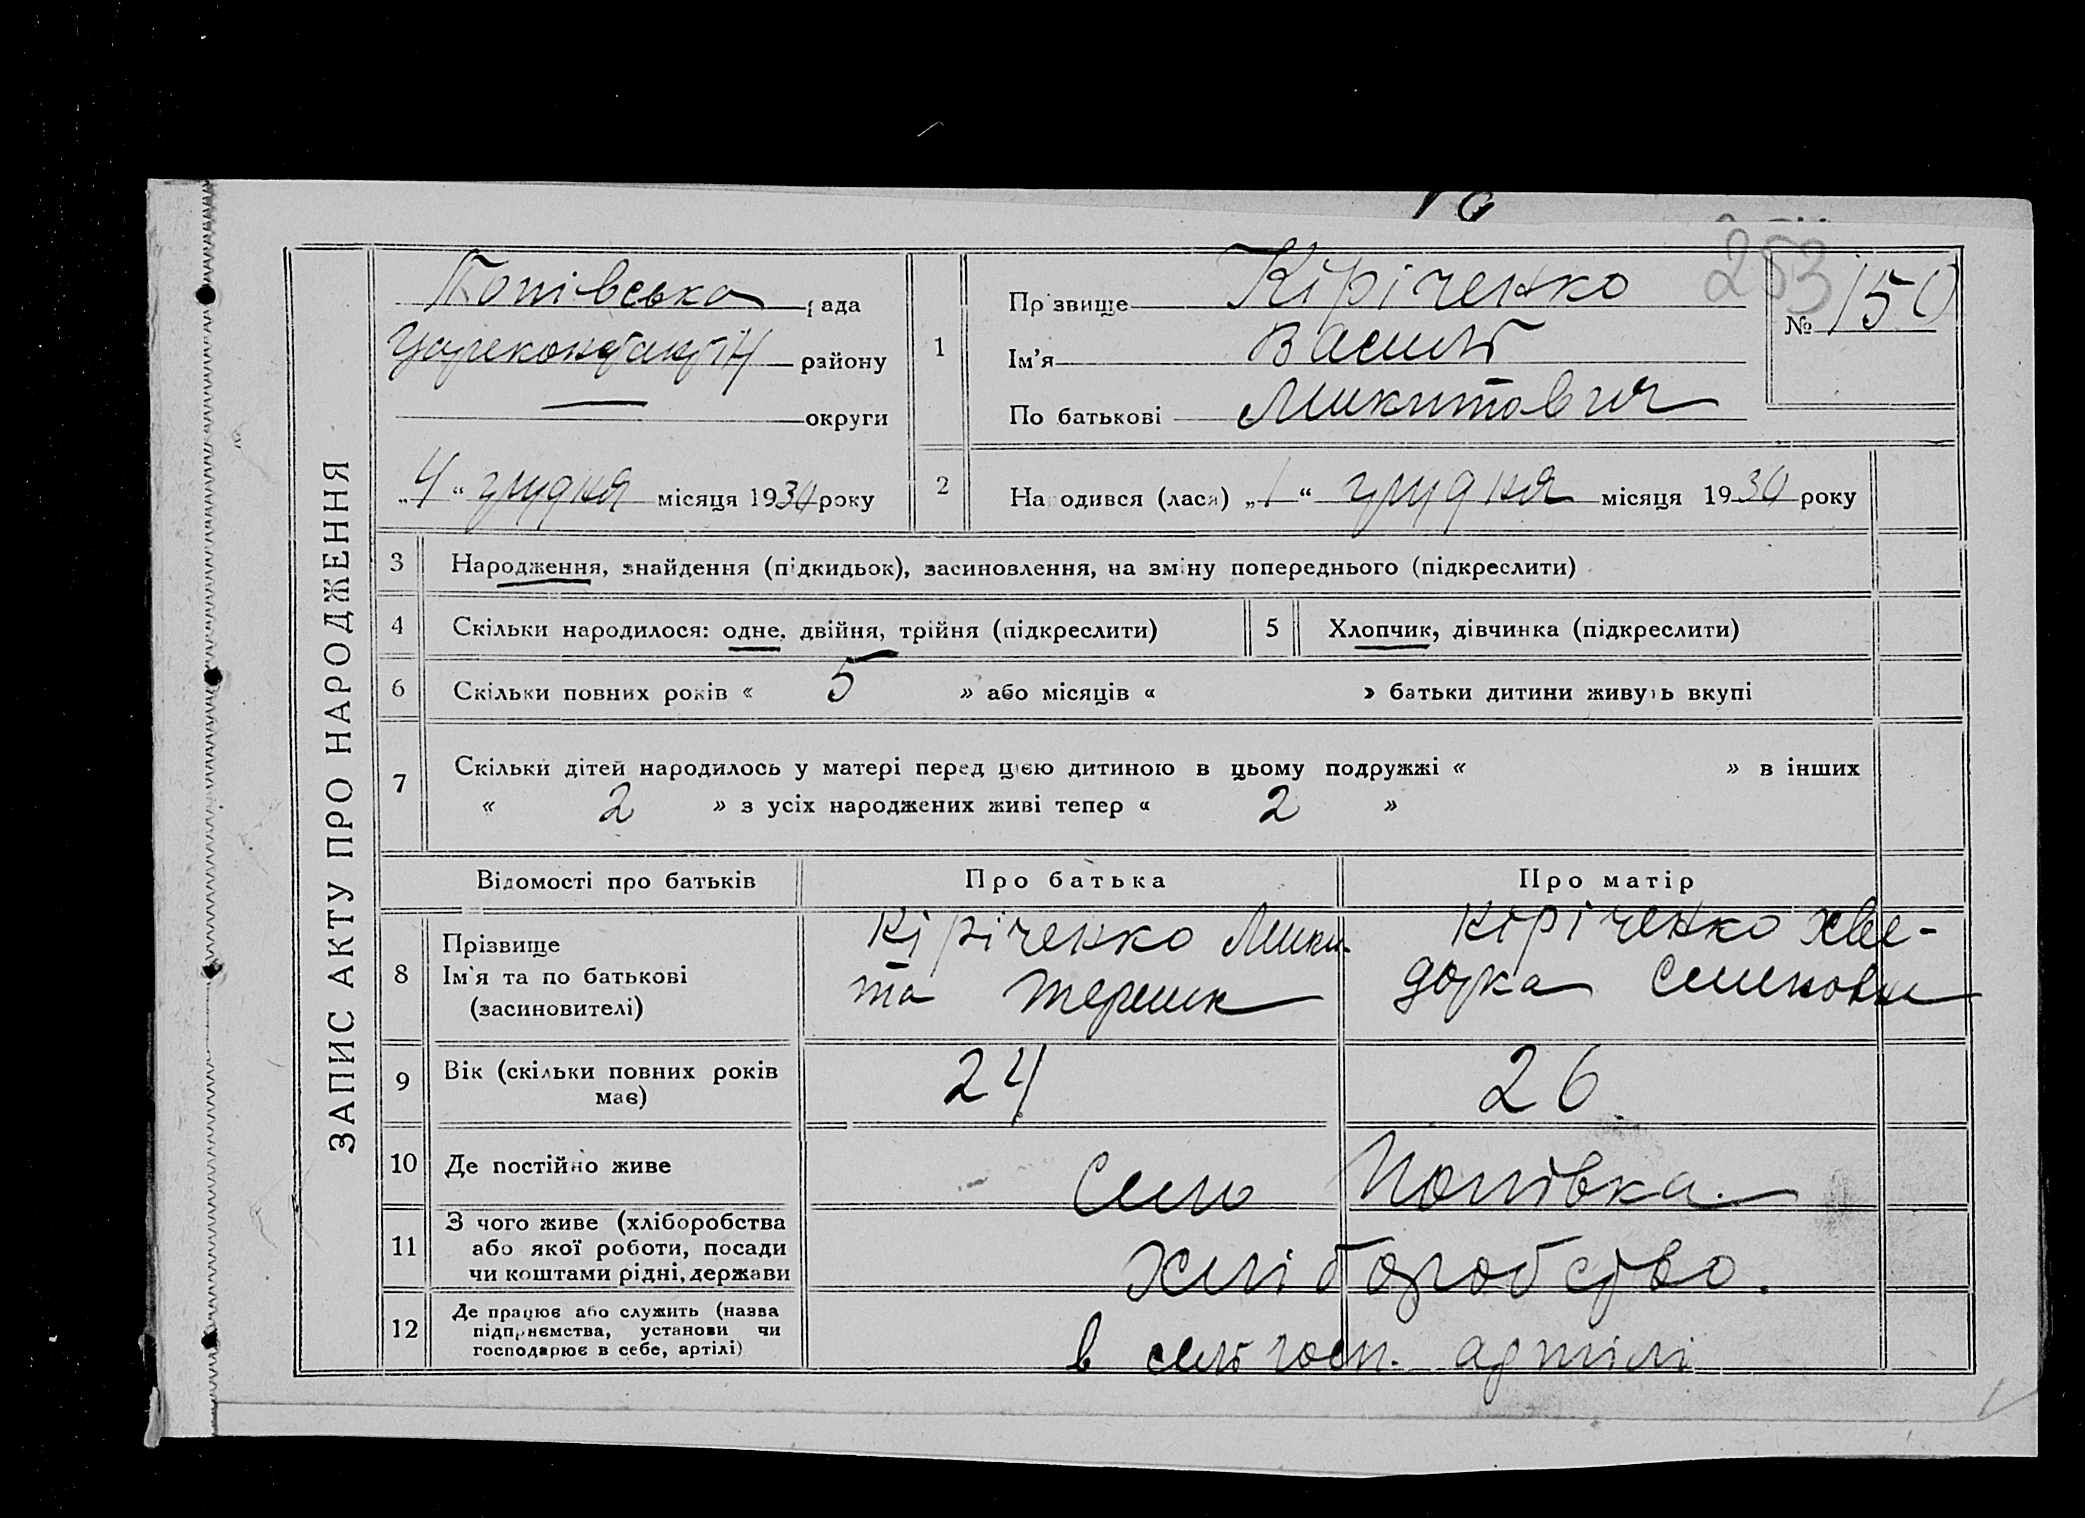 253
ЗАПИС АКТУ ПРО НАРОДЖЕННЯ
Попівська рада
району
округи
„4“ грудня місяця 1930 року
1
Прізвище Кіріченко
Ім'я Василь
По батькові Микитович
№ 150
2
Народився (лася) „1“ грудня місяця 1930 року
3 Народження, знайдення (підкидьок), засиновлення, на зміну попереднього (підкреслити)
4 Скільки народилося: одне, двійня, трійня (підкреслити)
5 Хлопчик, дівчинка (підкреслити)
6 Скільки повних років « 5 » або місяців « » батьки дитини живуть вкупі
7 Скільки дітей народилось у матері перед цією дитиною в цьому подружжі « » в інших
« 2 » з усіх народжених живі тепер « 2 »
Відомості про батьків Про батька Про матір
8
Прізвище
Ім'я та по батькові
(засиновителі)
Кіріченко Мики-
та Терешк
Кіріченко Хве-
дорка Семеновн
9 Вік (скільки повних років
має)
24 26
10 Де постійно живе Село Попівка.
11 З чого живе (хліборобства
або якої роботи, посади
чи коштами рідні, держави
Хліборобство.
12 Де працює або служить (назва
підприємства, установи чи
господарює в себе, артілі)
в сельгосп. артілі